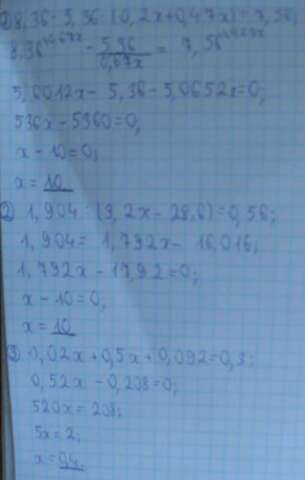 1) 8,36 - 5,36 : (0,2x+0,47x) = 7,56;
8,36 - 5,36/0,67x = 7,56
5,6012x - 5,36 - 5,0652x = 0;
536x - 5360 = 0;
x - 10 = 0;
x = 10
2) 1,904 : (3,2x - 28,6) = 0,56;
1,904 = 1,792x - 16,016;
1,792x - 17,92 = 0;
x - 10 = 0;
x = 10
3) 0,02x + 0,5x + 0,092 = 0,3;
0,52x - 0,208 = 0;
520x = 208;
5x = 2;
x = 0,4.